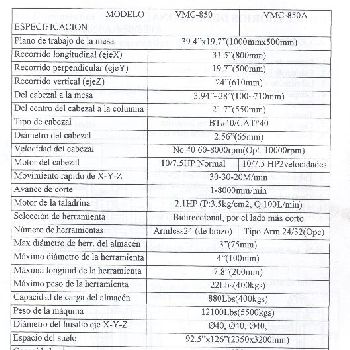 MODELO VMC-850 VMC-850A
ESPECIFICACION
Plano de trabajo de la mesa 39.4"x19.7"(1000mmx500mm)
Recorrido longitudinal (ejeX) 31.5"(800mm)
Recorrido perpendicular (ejeY) 19.7"(500mm)
Recorrido vertical (ejeZ) 24"(610mm)
Del cabezal a la mesa (100-710mm)
Del centro del cabezal a la columna 21.7"(550mm)
Tipo de cabezal BT#40/CAT#40
Diámetro del cabezal 2.56"(65mm)
Velocidad del cabezal No.40 60-8000rpm(Opt.10000rpm)
Motor del cabezal 10/7.5HP Normal 10/7.5 HP2velocidades
Movimiento rapido de X-Y-Z 30-30-20M/min
Avance de corte 1-8000mm/min
Motor de la taladrina 2.1HP (P:3.5kg/cm2, Q:100L/min)
Selección de herramienta Bidireccional, por el lado más corto
Número de herramientas Armless24 (de brazo) Tipo Arm 24/32(Opc)
Max diámetro de herr. del almacén 3"(75mm)
Máximo diámetro de la herramienta 4"(100mm)
Máxima longitud de la herramienta 7.8"(200mm)
Máximo peso de la herramienta
Capacidad de carga del almacén 880Lbs(400kgs)
Peso de la máquina 12100Lbs(5500kgs)
Diámetro del husillo eje X-Y-Z Ø40, Ø40, Ø40,
Espacio del suelo 92.5"x126"(2350x3200mm)